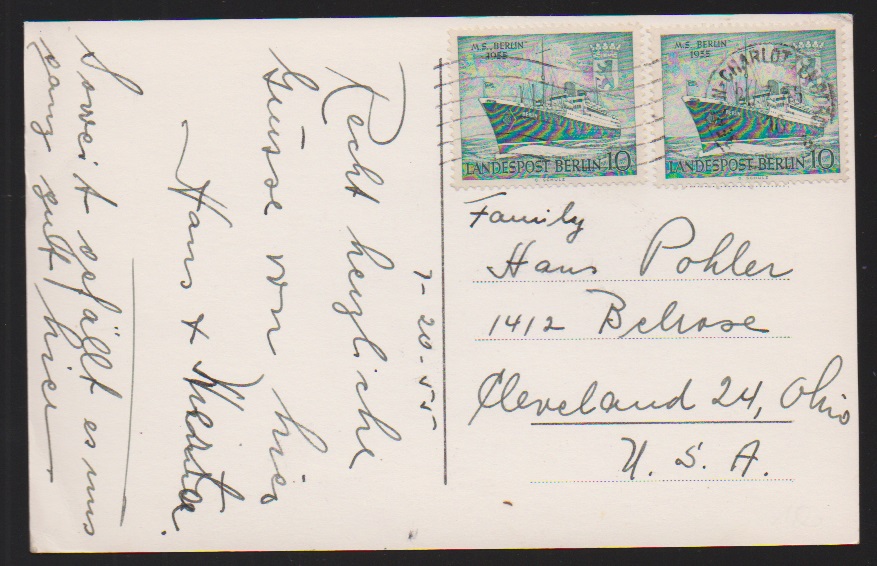 7-20-55
Recht herzliche
Grüsse von hier
Hans + Martha.
Soweit gefällt es uns
ganz gut hier
M.S. „BERLIN"
1955
LANDESPOST BERLIN 10
M.S. „BERLIN"
1955
LANDESPOST BERLIN 10
BERLIN-CHARLOTTENBURG
Family
Hans Pohler
1412 Belrose
Cleveland 24, Ohio
U. S. A.